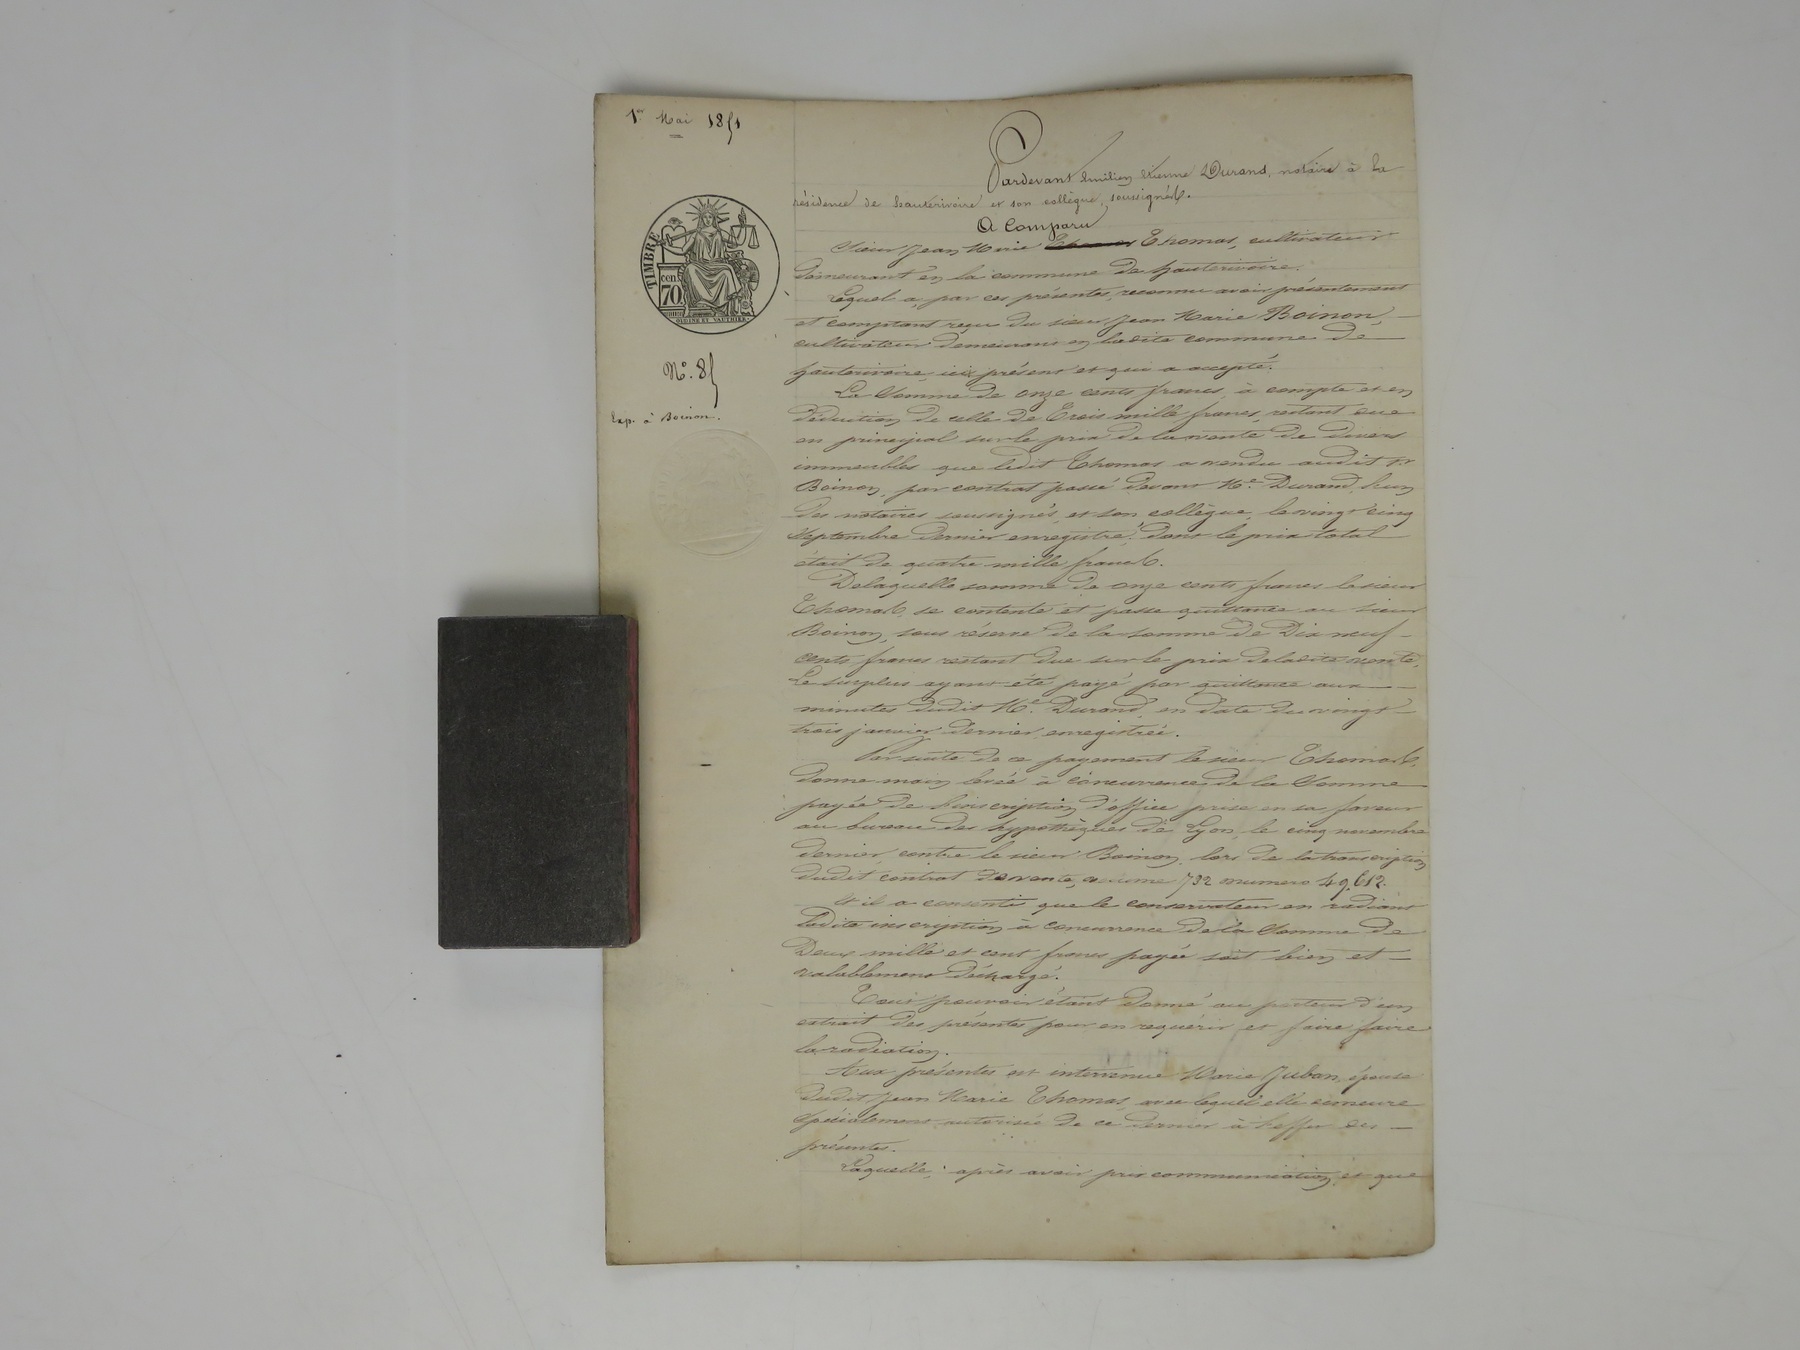 1er Mai 1851
TIMBRE
cen.
70
ORDRE ET
N° 85
Exp. à Boinon.
Pardevant Emilien Etienne Durand, notaire à la
résidence de hauterivoire et son collègue, soussignés.
A Comparu
Sieur Jean Marie Thomas, cultivateur
demeurant en la commune de hauterivoire.
Lequel a, par ces présentes, reconnu avoir présentement
et comptant reçu du sieur Jean Marie Boinon,
cultivateur demeurant en ladite commune de
hauterivoire, ici présent et qui a accepté.
La Somme de onze cents francs, à compte et en
déduction de celle de Trois mille francs, restant due
en principal sur le prix de la vente de divers
immeubles que ledit Thomas a vendu audit Sr
Boinon, par contrat passé devant Me Durand, l'un
des notaires soussignés, et son collègue, le vingt cinq
Septembre dernier enregistré, dont le prix total
était de quatre mille francs.
De laquelle somme de onze cents francs le sieur
Thomas, se contente et passe quittance au sieur
Boinon, sous réserve de la somme de Dix neuf
cents francs restant due sur le prix de ladite vente,
Le surplus ayant été payé par quittance aux
minutes dudit Me Durand, en date du vingt
trois janvier dernier, enregistrée.
Par suite de ce payement le sieur Thomas,
donne main levée à concurrence de la Somme
payée de l'inscription d'office prise en sa faveur
au bureau des hypothèques de Lyon, le cinq novembre
dernier, contre le sieur Boinon, lors de la transcription
dudit contrat de vente, volume 792 numero 49,612.
Et il a consenti que le conservateur en radiant
ladite inscription à concurrence de la Somme de
Deux mille et cent francs payée soit bien et
valablement déchargé.
Tout pouvoir étant donné au porteur d'un
extrait des présentes pour en requérir et faire faire
la radiation.
Aux présentes est intervenue Marie Juban, épouse
dudit Jean Marie Thomas, avec lequel elle demeure
Spécialement autorisée de ce dernier à l'effet des
présentes.
Laquelle, après avoir pris communication, et que